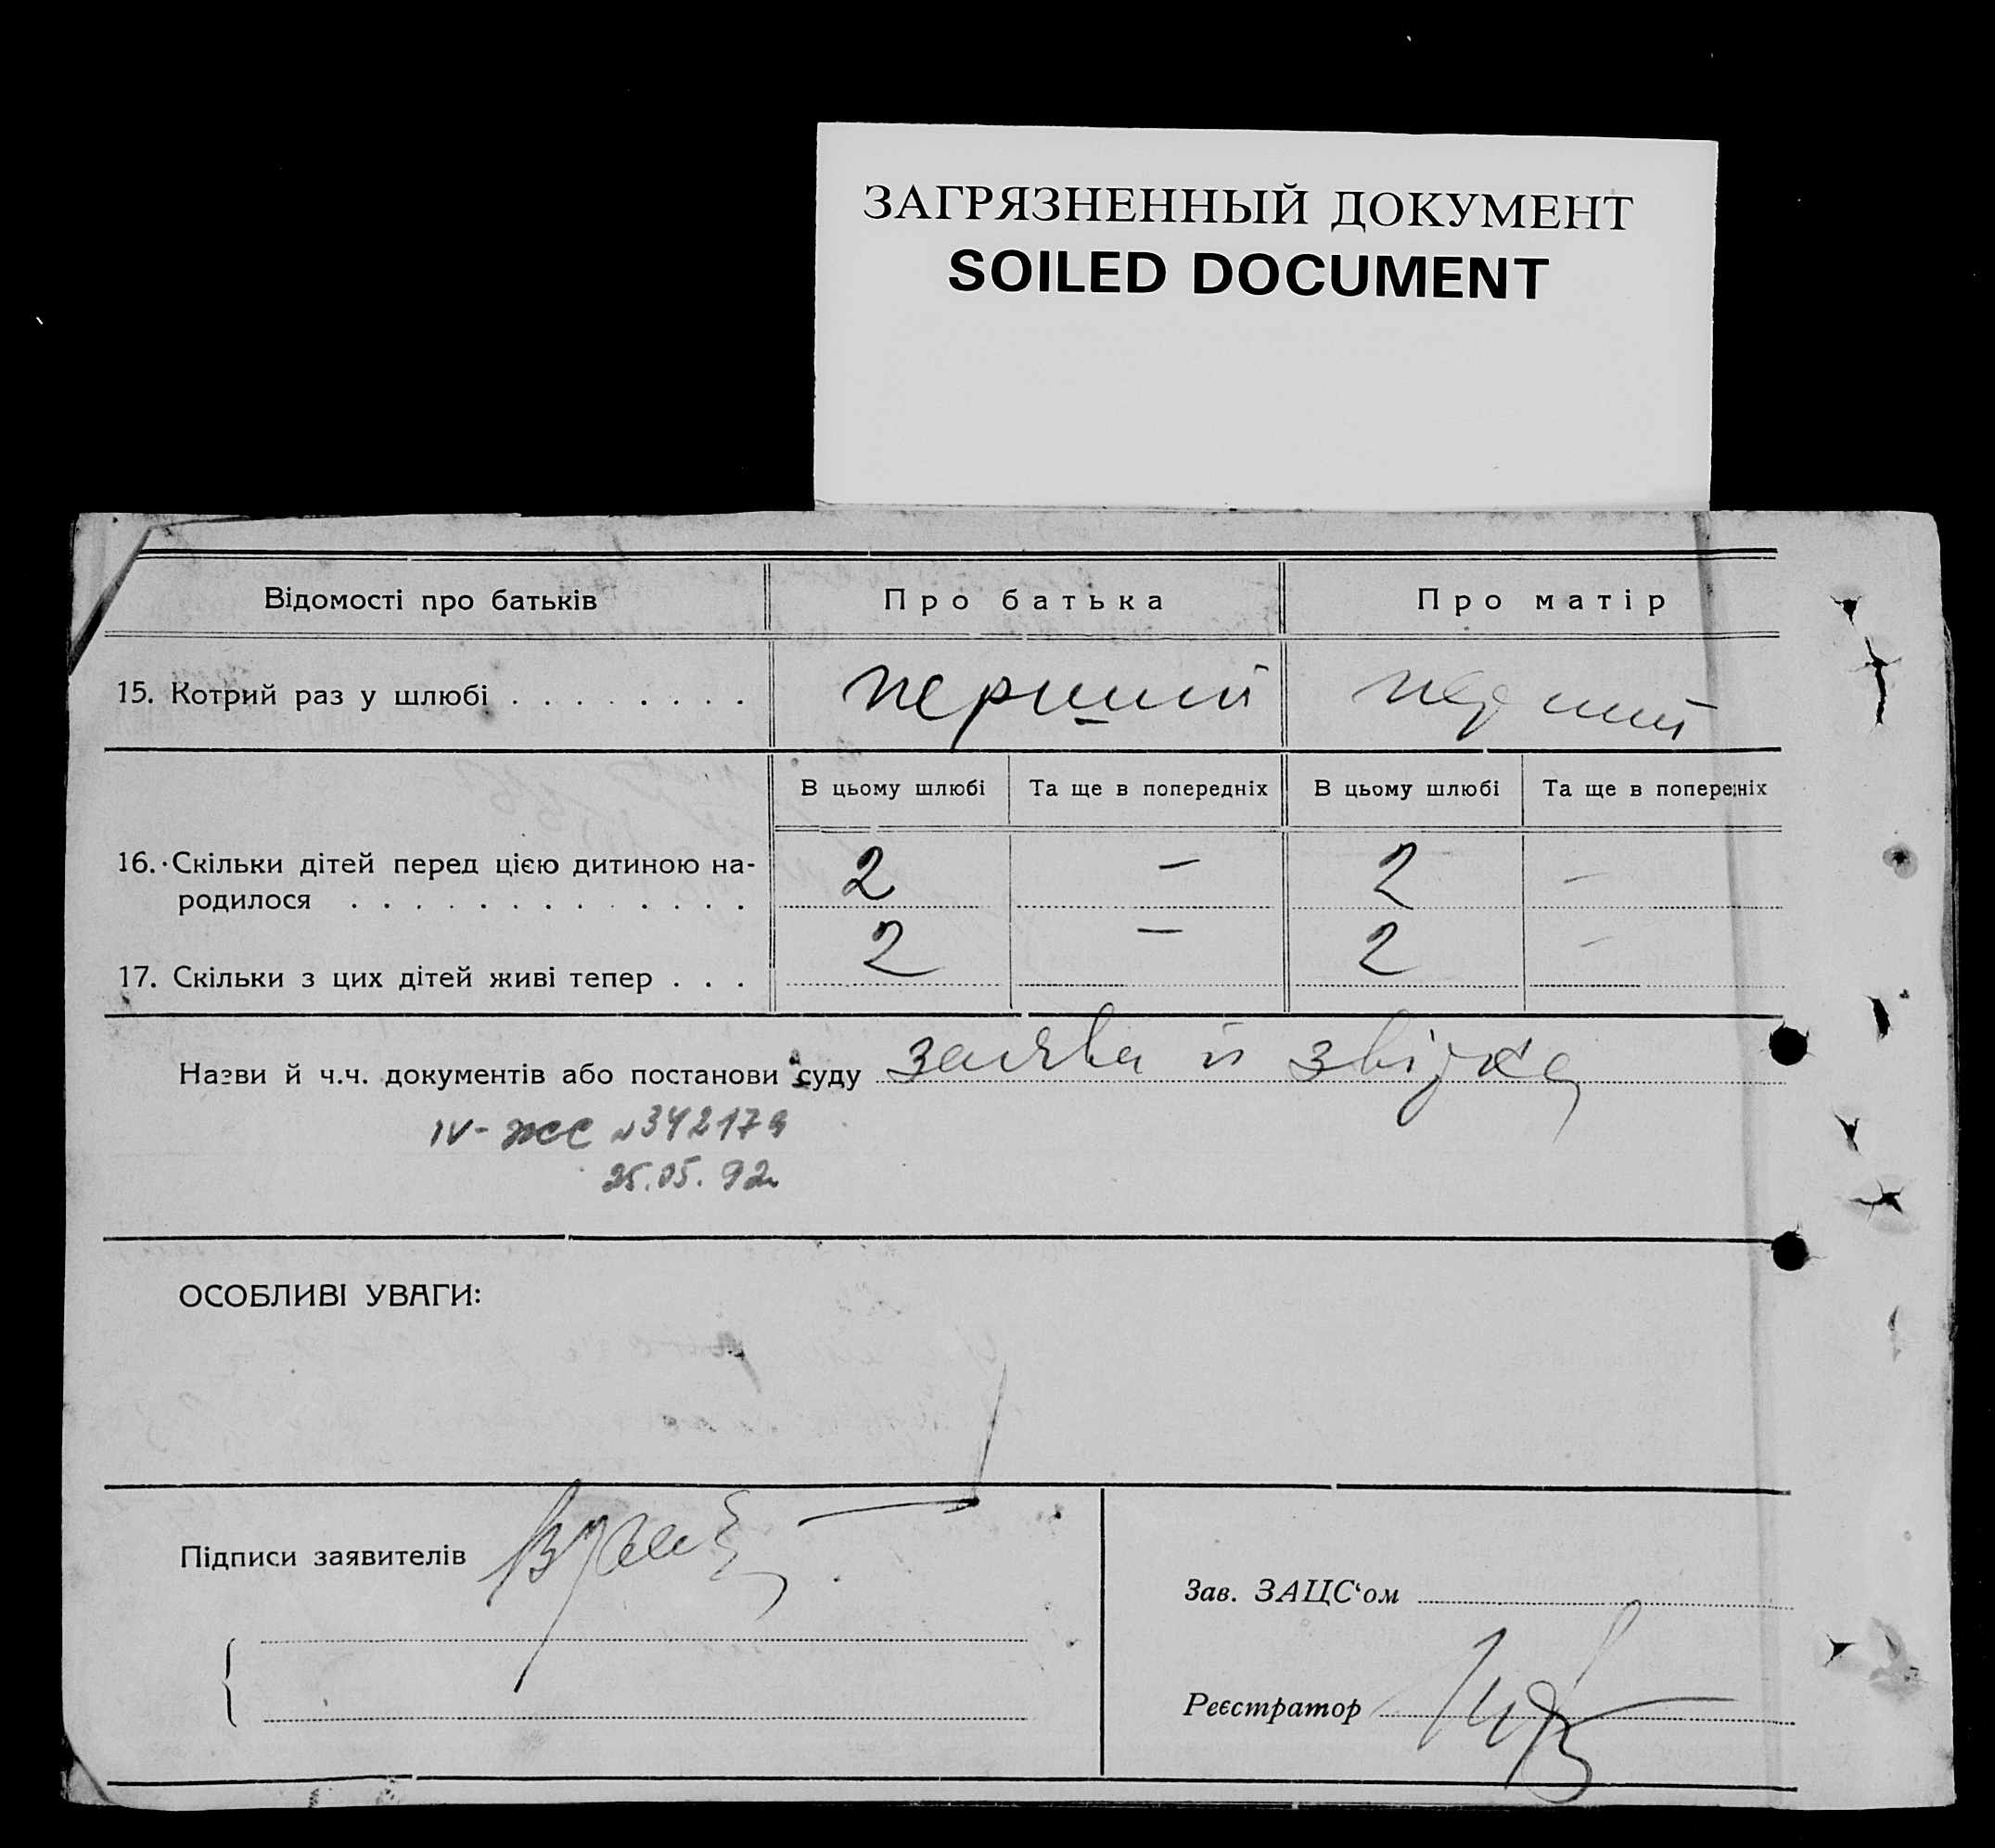 ЗАГРЯЗНЕННЫЙ ДОКУМЕНТ
SOILED DOCUMENT
Відомості про батьків Про батька Про матір
15. Котрий раз у шлюбі . . . . . . . . перший перший
В цьому шлюбі Та ще в попередніх В цьому шлюбі Та ще в попередніх
16. Скільки дітей перед цією дитиною на-
родилося . . . . . . . . . . . . . 2 — 2 —
17. Скільки з цих дітей живі тепер . . . 2 — 2 —
Назви й ч.ч. документів або постанови суду заява й звідка
IV-ЖС №342179
25.05.92
ОСОБЛИВІ УВАГИ:
Підписи заявителів
Зав. ЗАЦС'ом
Реєстратор